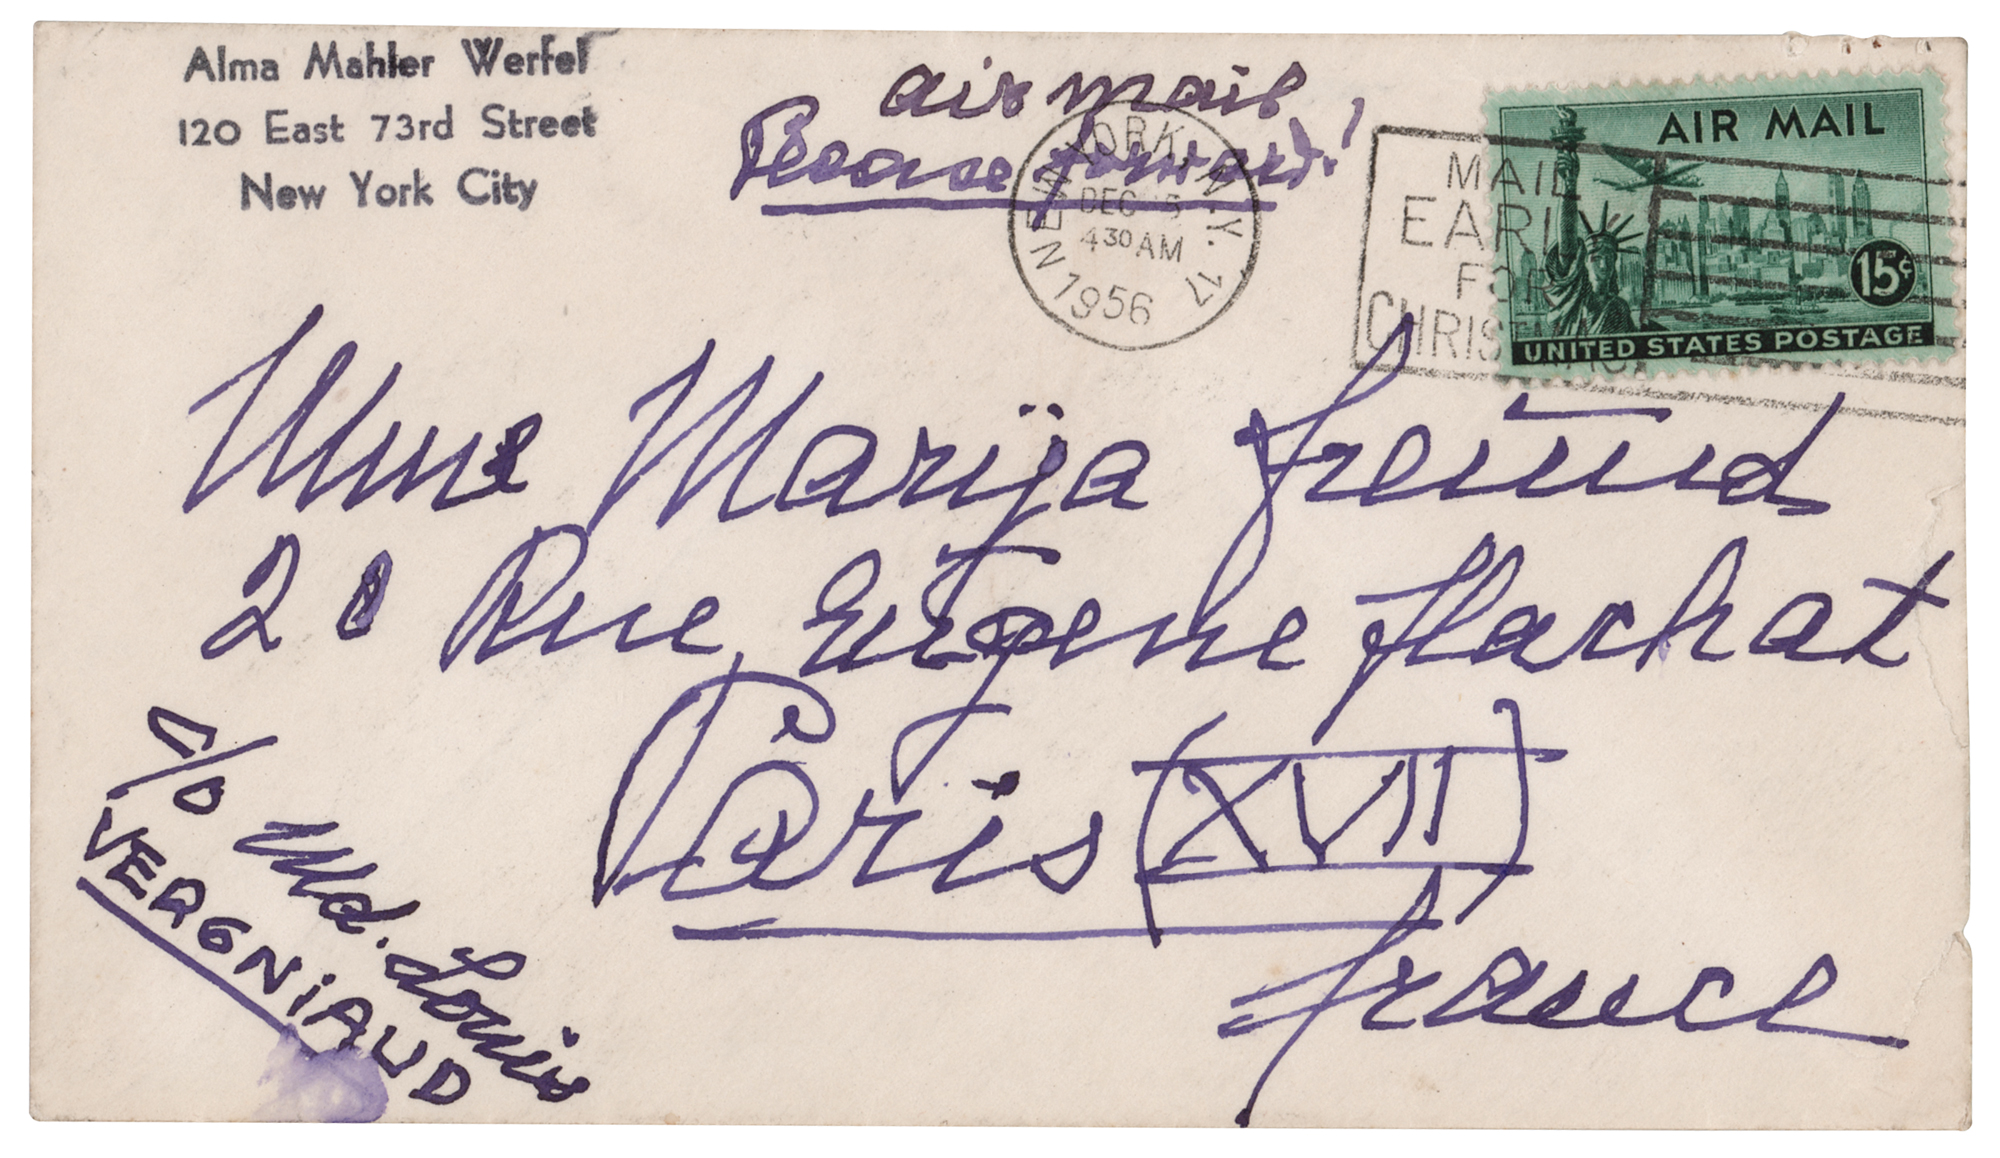 Alma Mahler Werfel
120 East 73rd Street
New York City
air mail
Please forward!
NEW YORK, N.Y. 17
DEC 5
4 30 AM
1956
MAIL
EARLY
FOR
CHRISTMAS
AIR MAIL
15¢
UNITED STATES POSTAGE
Mme Marija Freund
20 Rue Eugene Flachat
Paris (XVII)
France
c/o Md. Louis
VERGNiAUD